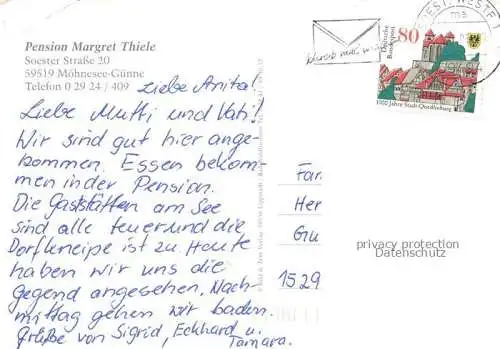 Pension Margret Thiele
Soester Straße 20
59519 Möhnesee-Günne
Telefon 0 29 24 / 409
Liebe Anita!
Liebe Mutti und Vati!
Wir sind gut hier ange-
kommen. Essen bekom-
men in der Pension.
Die Gaststätten am See
sind alle teuer und die
Dorfkneipe ist zu. Heute
haben wir uns die
Gegend angesehen. Nach-
mittag gehen wir baden.
Grüße von Sigrid, Eckhard u.
Tamara.
Fa
Her
Gu
1529
80
Deutsche
Bundespost
1000 Jahre Stadt Quedlinburg
SOEST, WESTF 1
Schreib mal wieder
privacy protection
Datenschutz